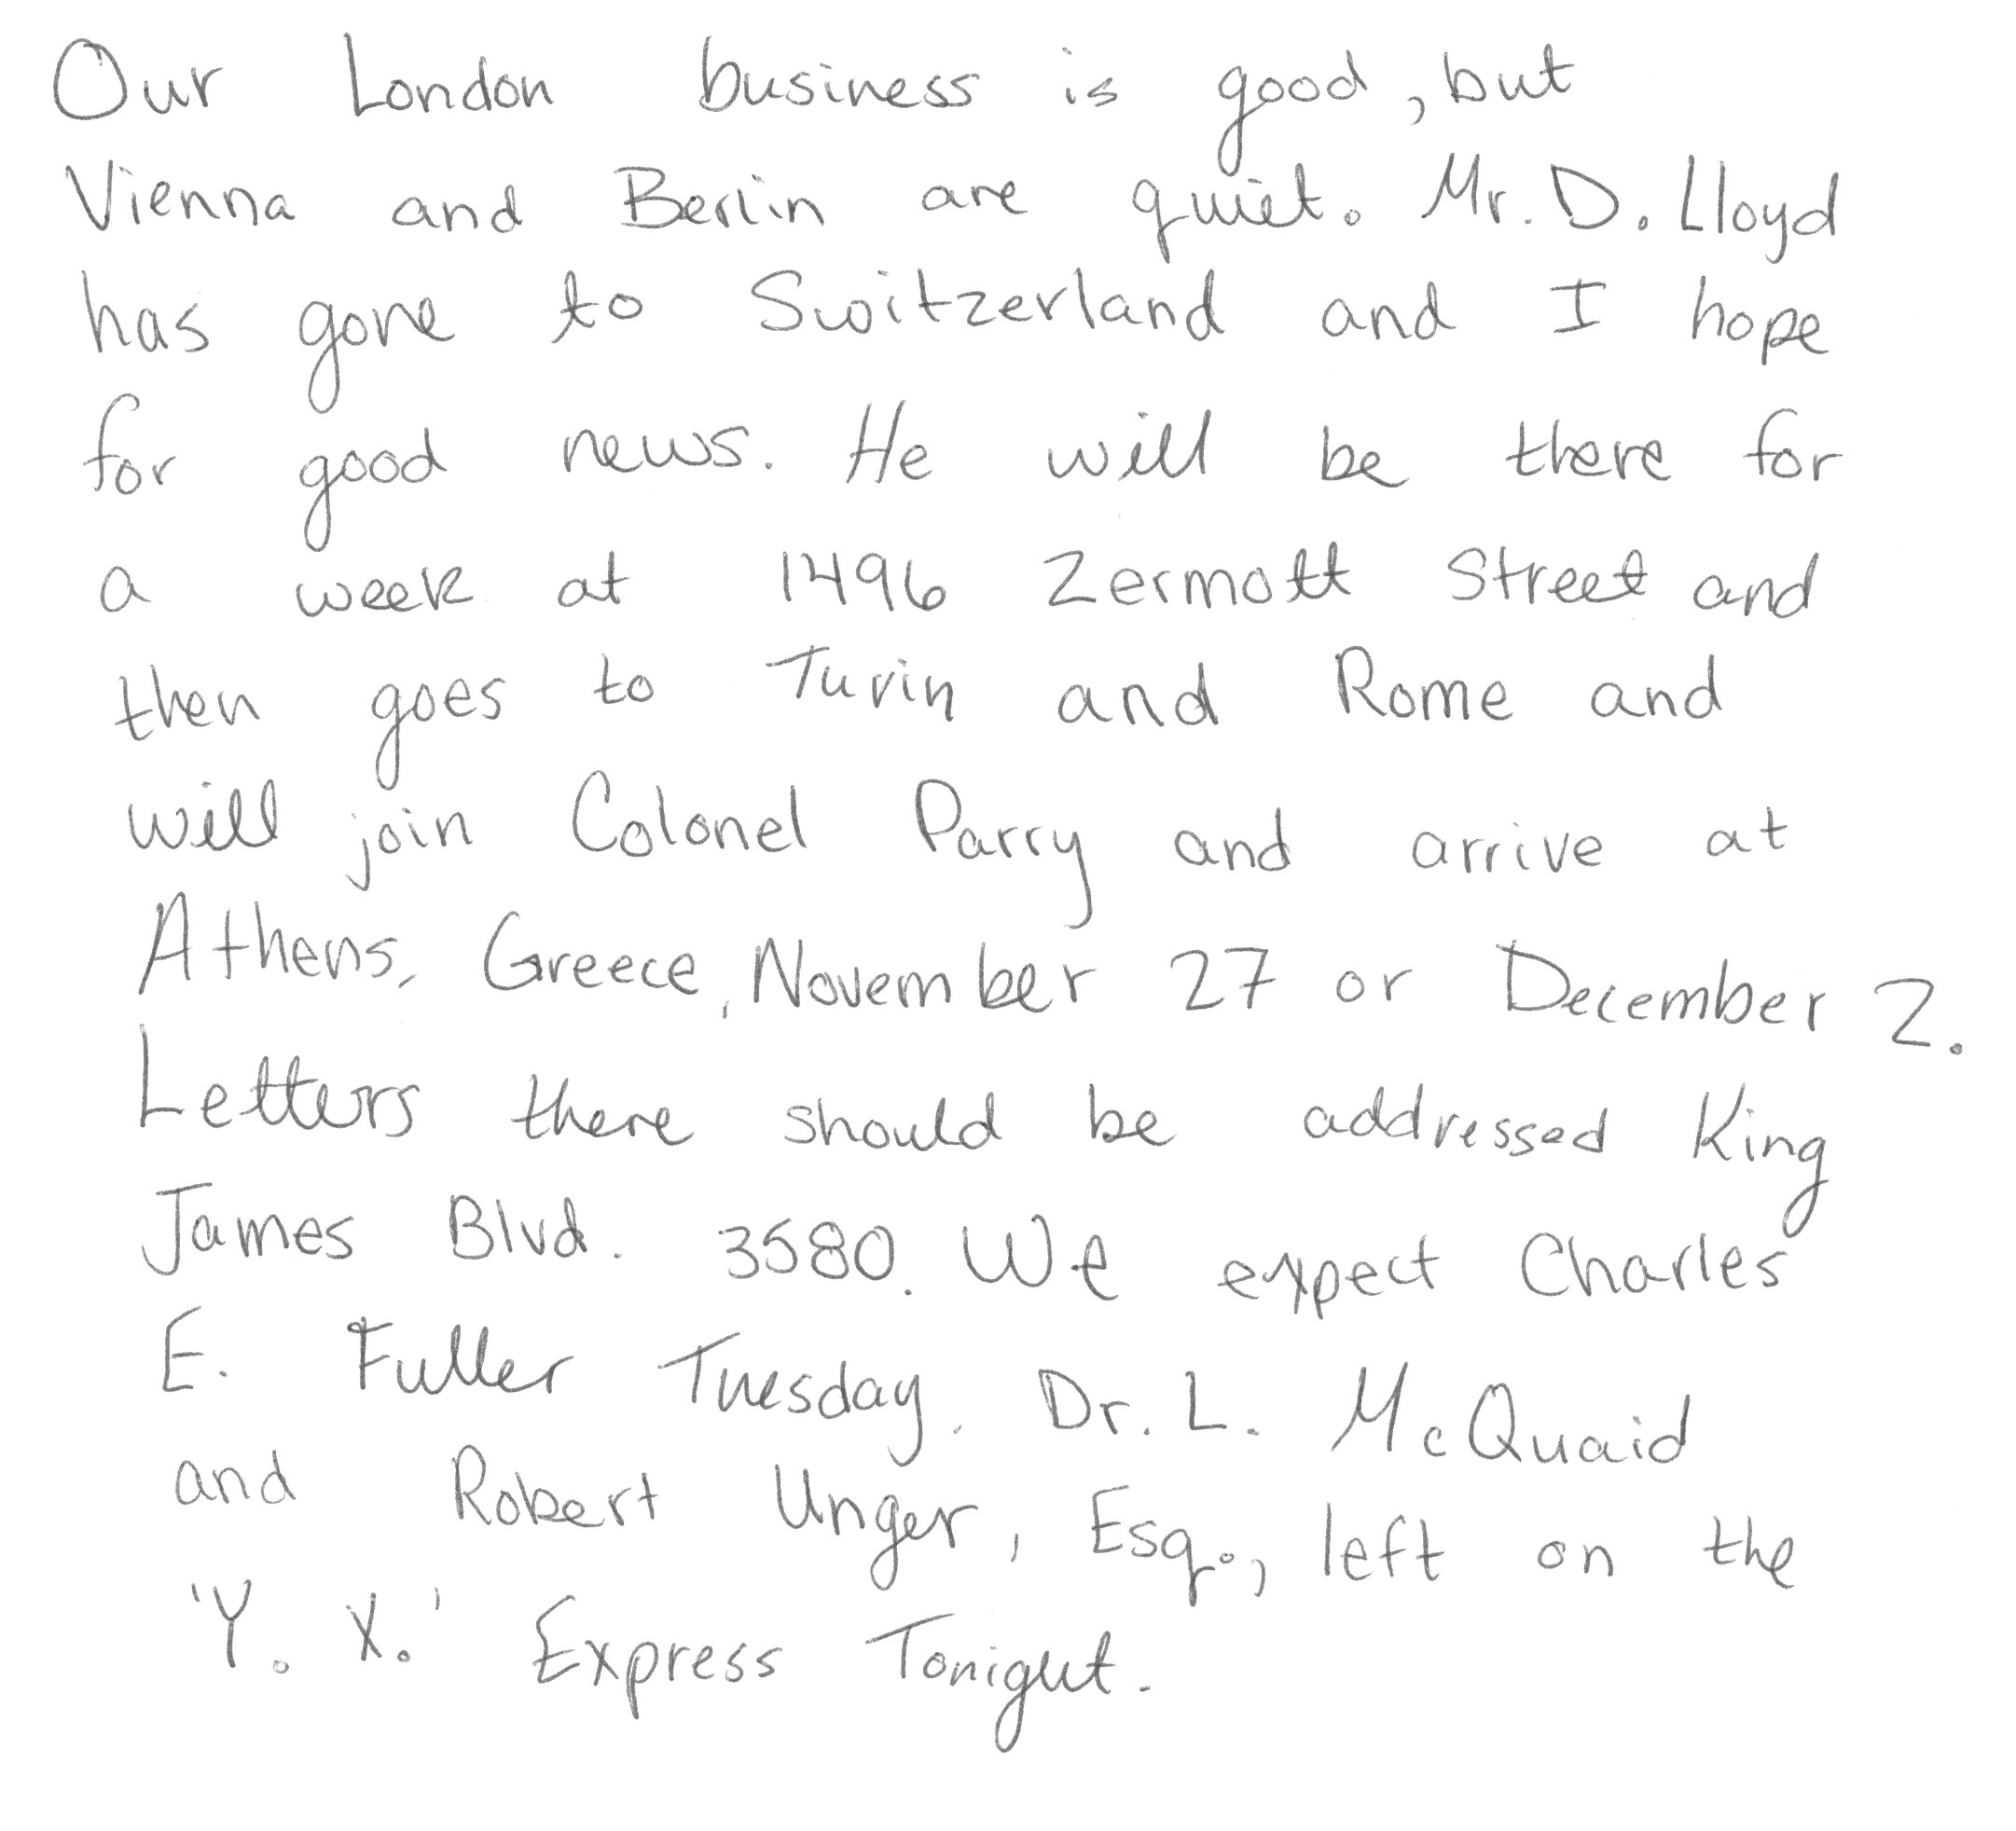 Our London business is good, but
Vienna and Berlin are quiet. Mr. D. Lloyd
has gone to Switzerland and I hope
for good news. He will be there for
a week at 1496 Zermott Street and
then goes to Turin and Rome and
will join Colonel Parry and arrive at
Athens, Greece, November 27 or December 2.
Letters there should be addressed King
James Blvd. 3580. We expect Charles
E. Fuller Tuesday. Dr. L. McQuaid
and Robert Unger, Esq., left on the
'Y. X.' Express Tonight.